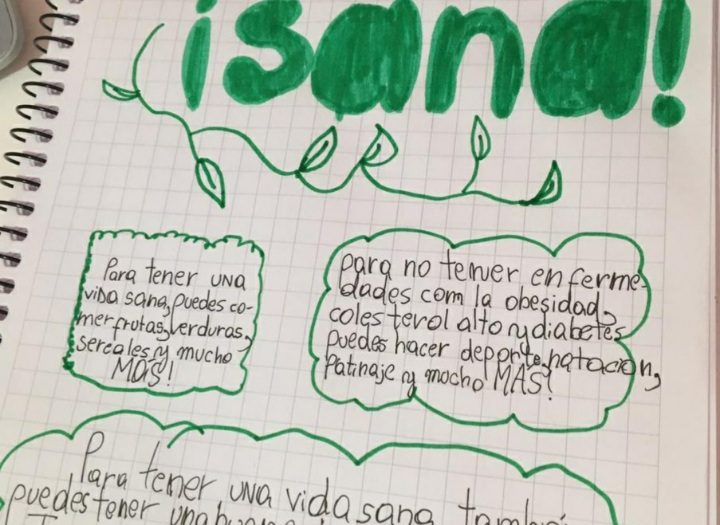 ¡sana!
Para tener una
vida sana, puedes co-
mer frutas, verduras,
sereales y mucho
MÁS!
para no tener enferme-
dades com la obesidad,
colesterol alto y diabetes
puedes hacer deporte, natacion,
Patinaje y mucho MÁS!
Para tener una vida sana también
puedes tener una